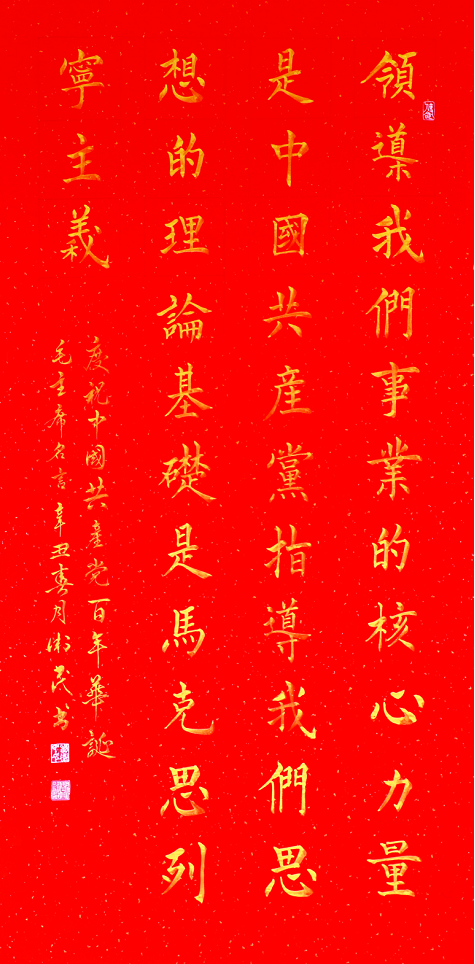 領導我們事業的核心力量
是中國共産黨指導我們思
想的理論基礎是馬克思列
寧主義
慶祝中國共産党百年華誕
毛主席名言辛丑春月民书